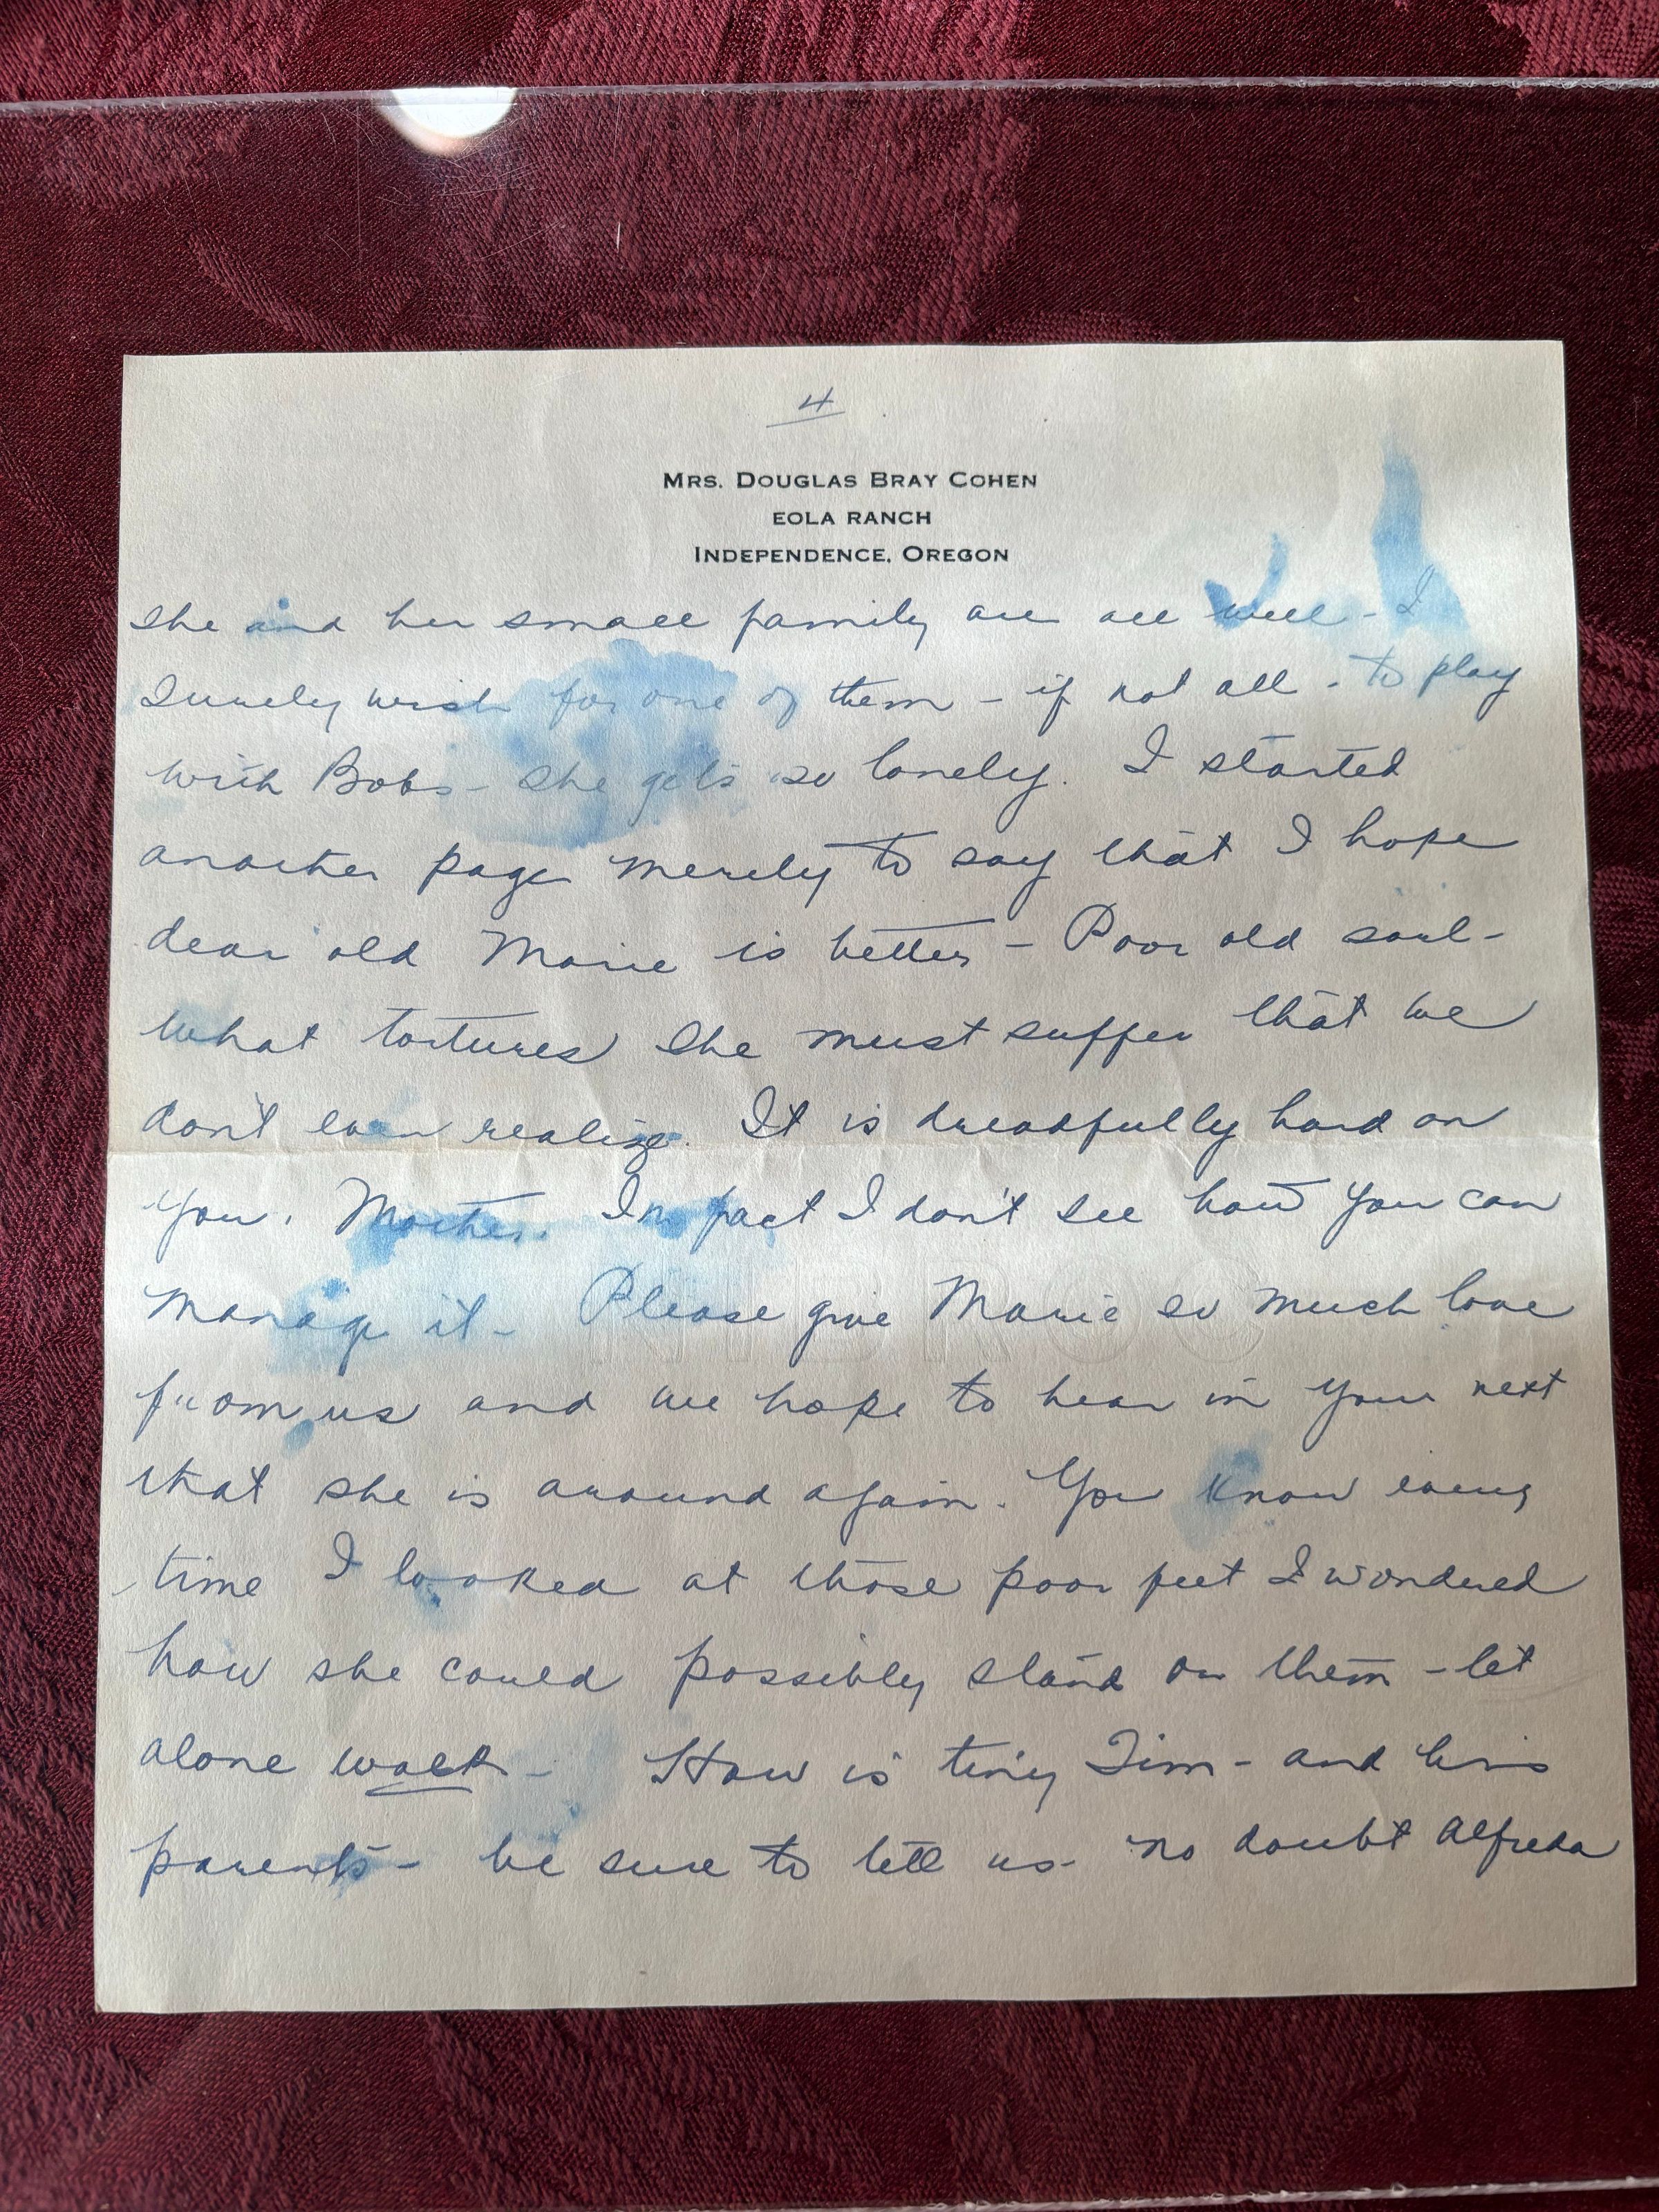 4
MRS. DOUGLAS BRAY COHEN
EOLA RANCH
INDEPENDENCE, OREGON
she and her small family are all well - I
surely wish for one of them - if not all - to play
with Bobs - she gets so lonely. I started
another page merely to say that I hope
dear old Marie is better - Poor old soul -
what tortures she must suffer that we
don't even realize. It is dreadfully hard on
you, Mother. In fact I don't see how you can
manage it - Please give Marie so much love
from us and we hope to hear in your next
that she is around again. You know every
time I looked at those poor feet I wondered
how she could possibly stand on them - let
alone walk - How is tiny Tim - and his
parents - be sure to tell us - no doubt Alfreda